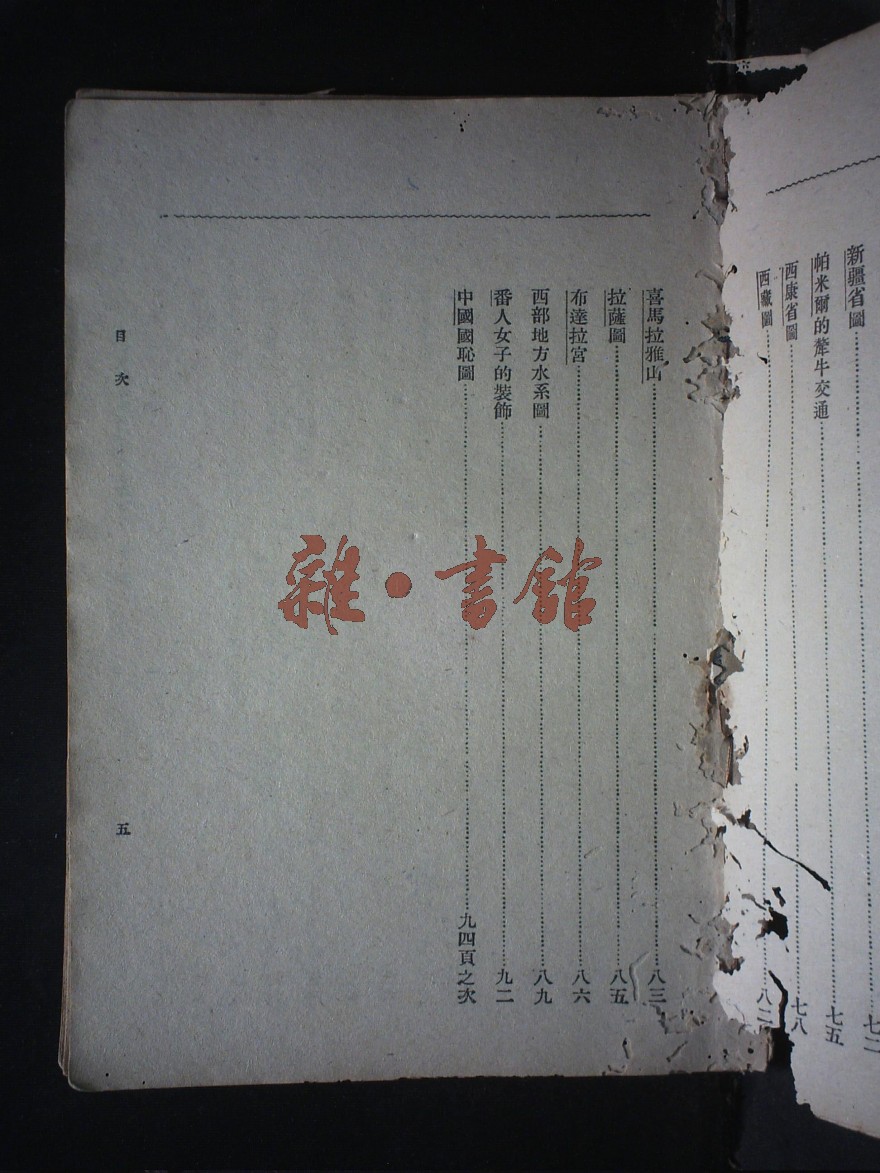 新疆省圖……七二
帕米爾的犛牛交通……七五
西康省圖……七八
西藏圖……八二
喜馬拉雅山……八三
拉薩圖……八五
布達拉宮……八六
西部地方水系圖……八九
番人女子的裝飾……九二
中國國恥圖……九四頁之次
目次
五
雜·書館